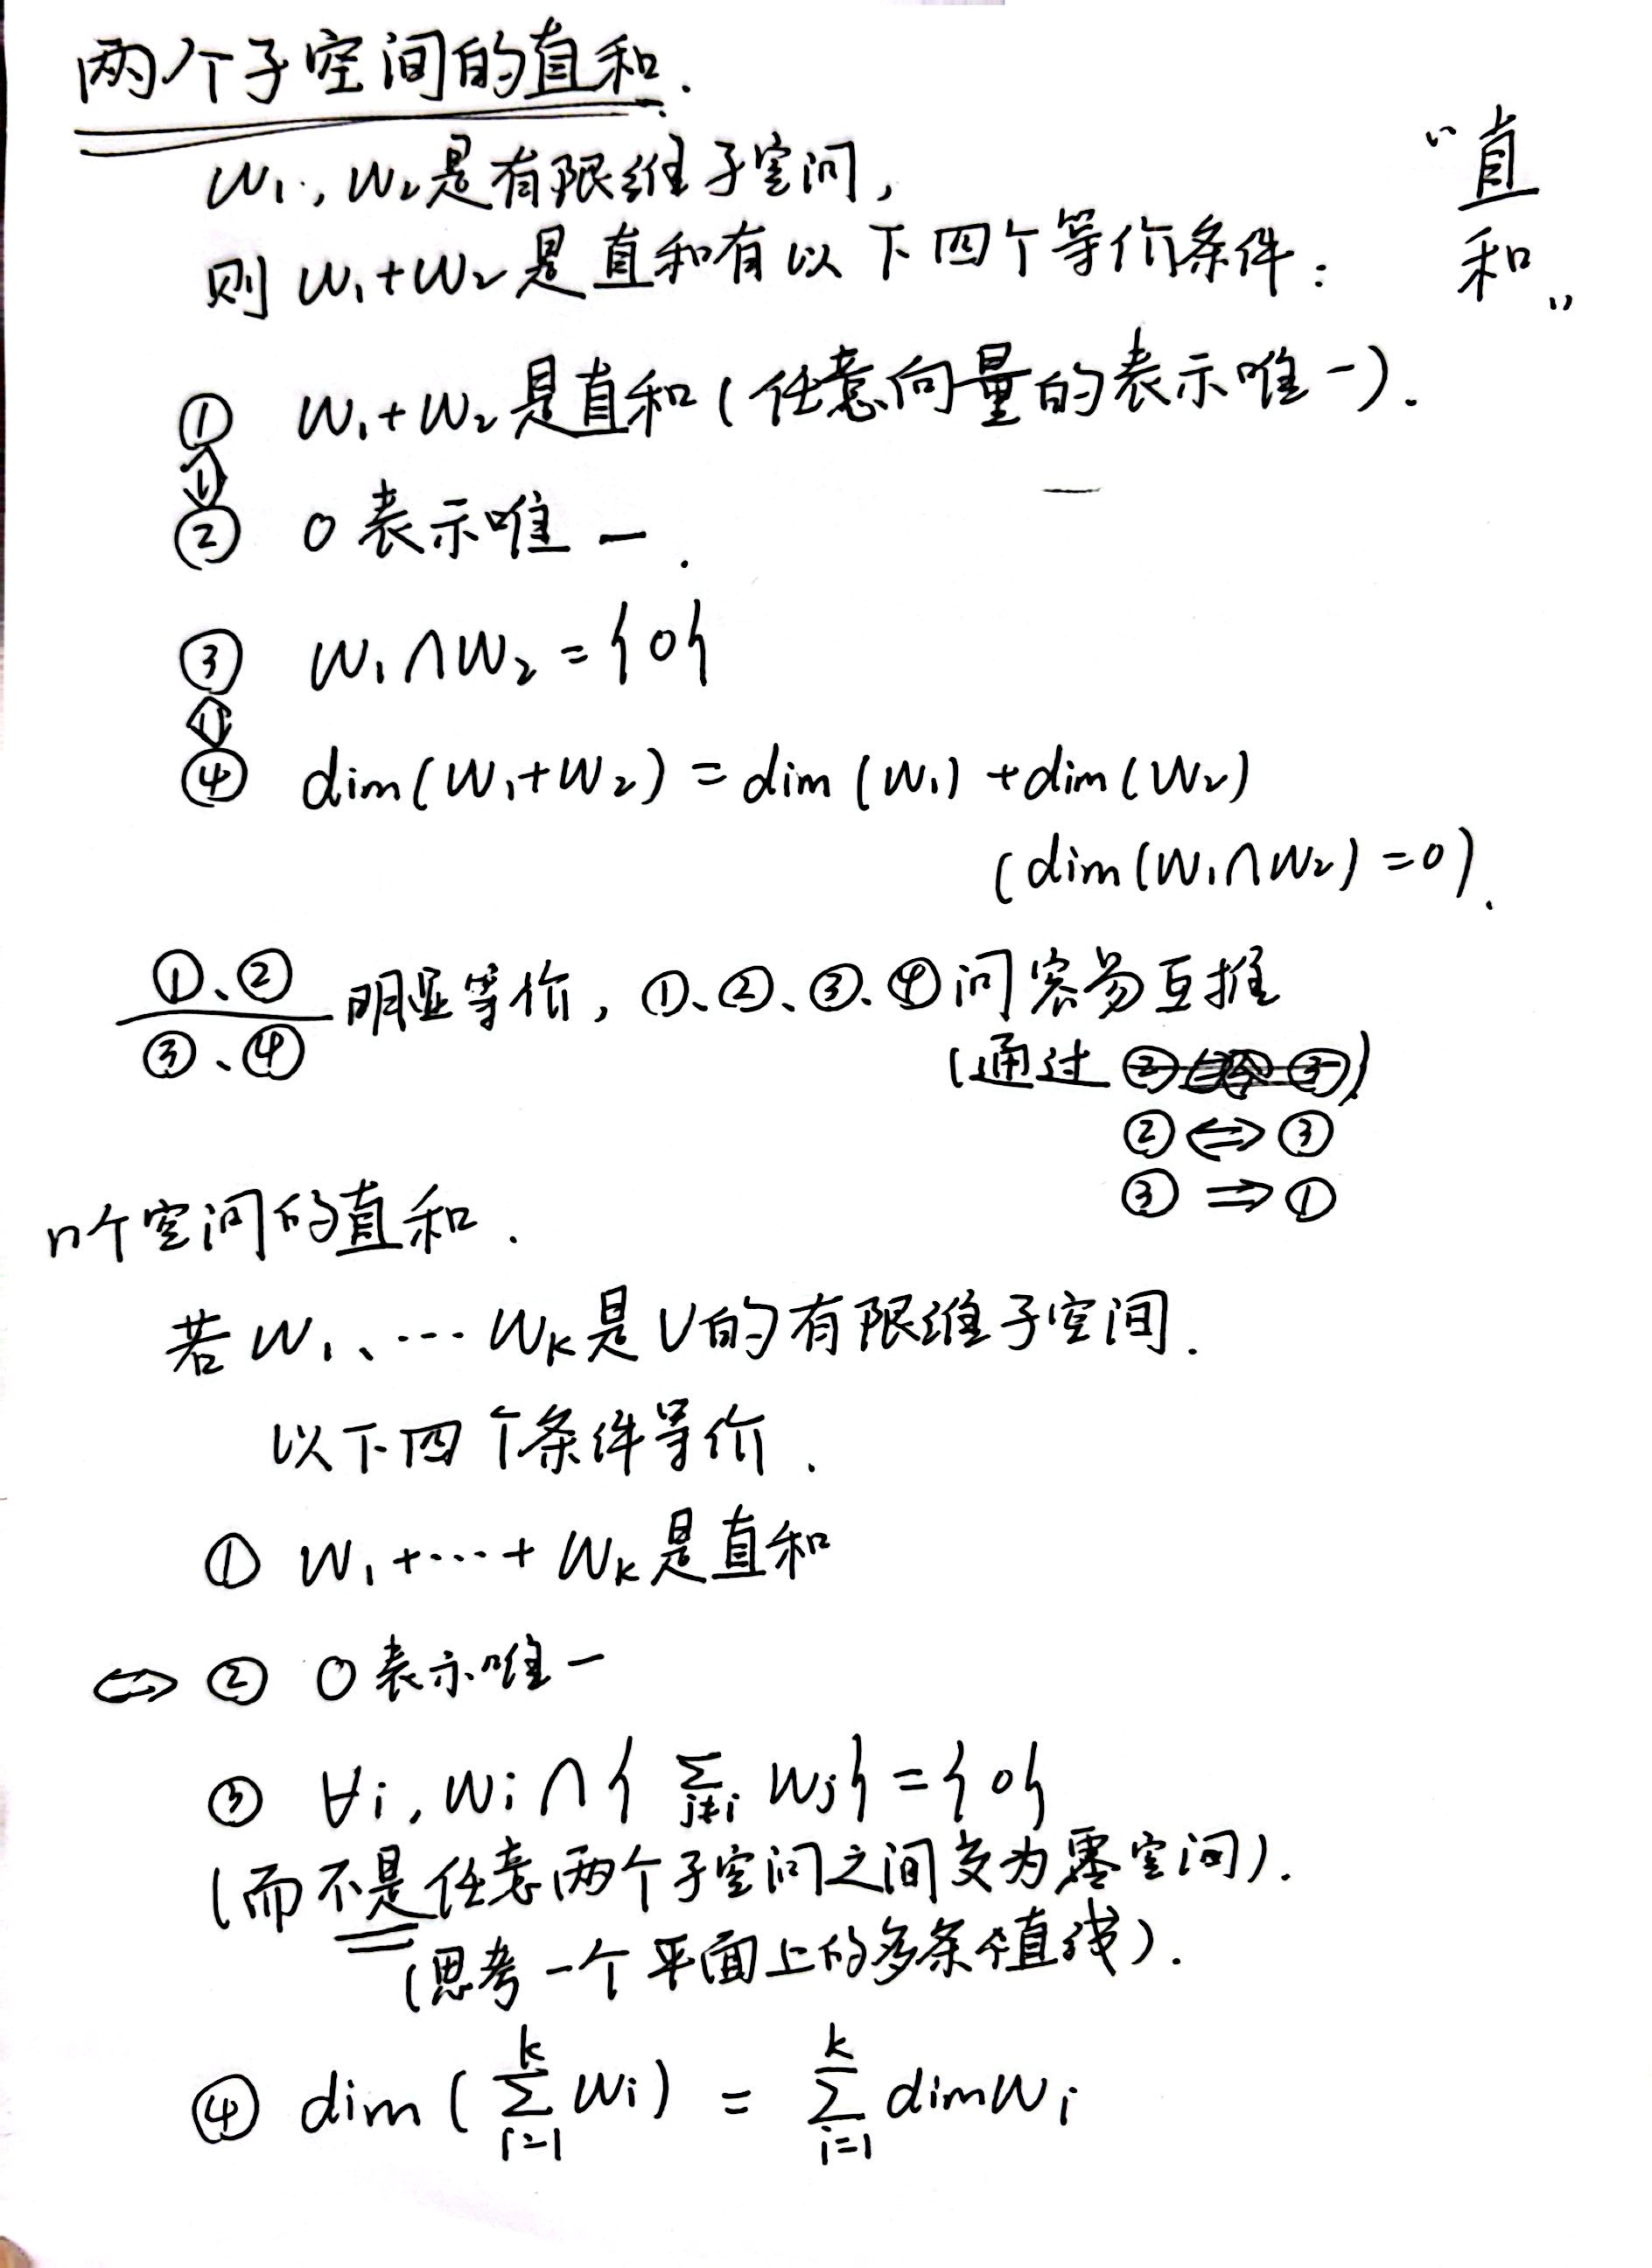 两个子空间的直和.
W₁, W₂是有限维子空间,
则 W₁+W₂是直和有以下四个等价条件:
“直和”
① W₁+W₂是直和(任意向量的表示唯一).
⇕
② 0表示唯一.
③ W₁∩W₂={0}
⇕
④ dim(W₁+W₂)=dim(W₁)+dim(W₂)
(dim(W₁∩W₂)=0).
①、②
③、④
明显等价, ①、②、③、④间容易互推
(通过 )
②⇔③
③⇒①
n个空间的直和.
若W₁、…Wₖ是V的有限维子空间.
以下四个条件等价.
① W₁+…+Wₖ是直和
⇔ ② 0表示唯一
③ ∀i, Wᵢ∩{∑_{j≠i} Wⱼ}={0}
(而不是任意两个子空间之间交为零空间).
(思考一个平面上的多条直线).
④ dim(∑_{i=1}^{k} Wᵢ) = ∑_{i=1}^{k} dimWᵢ